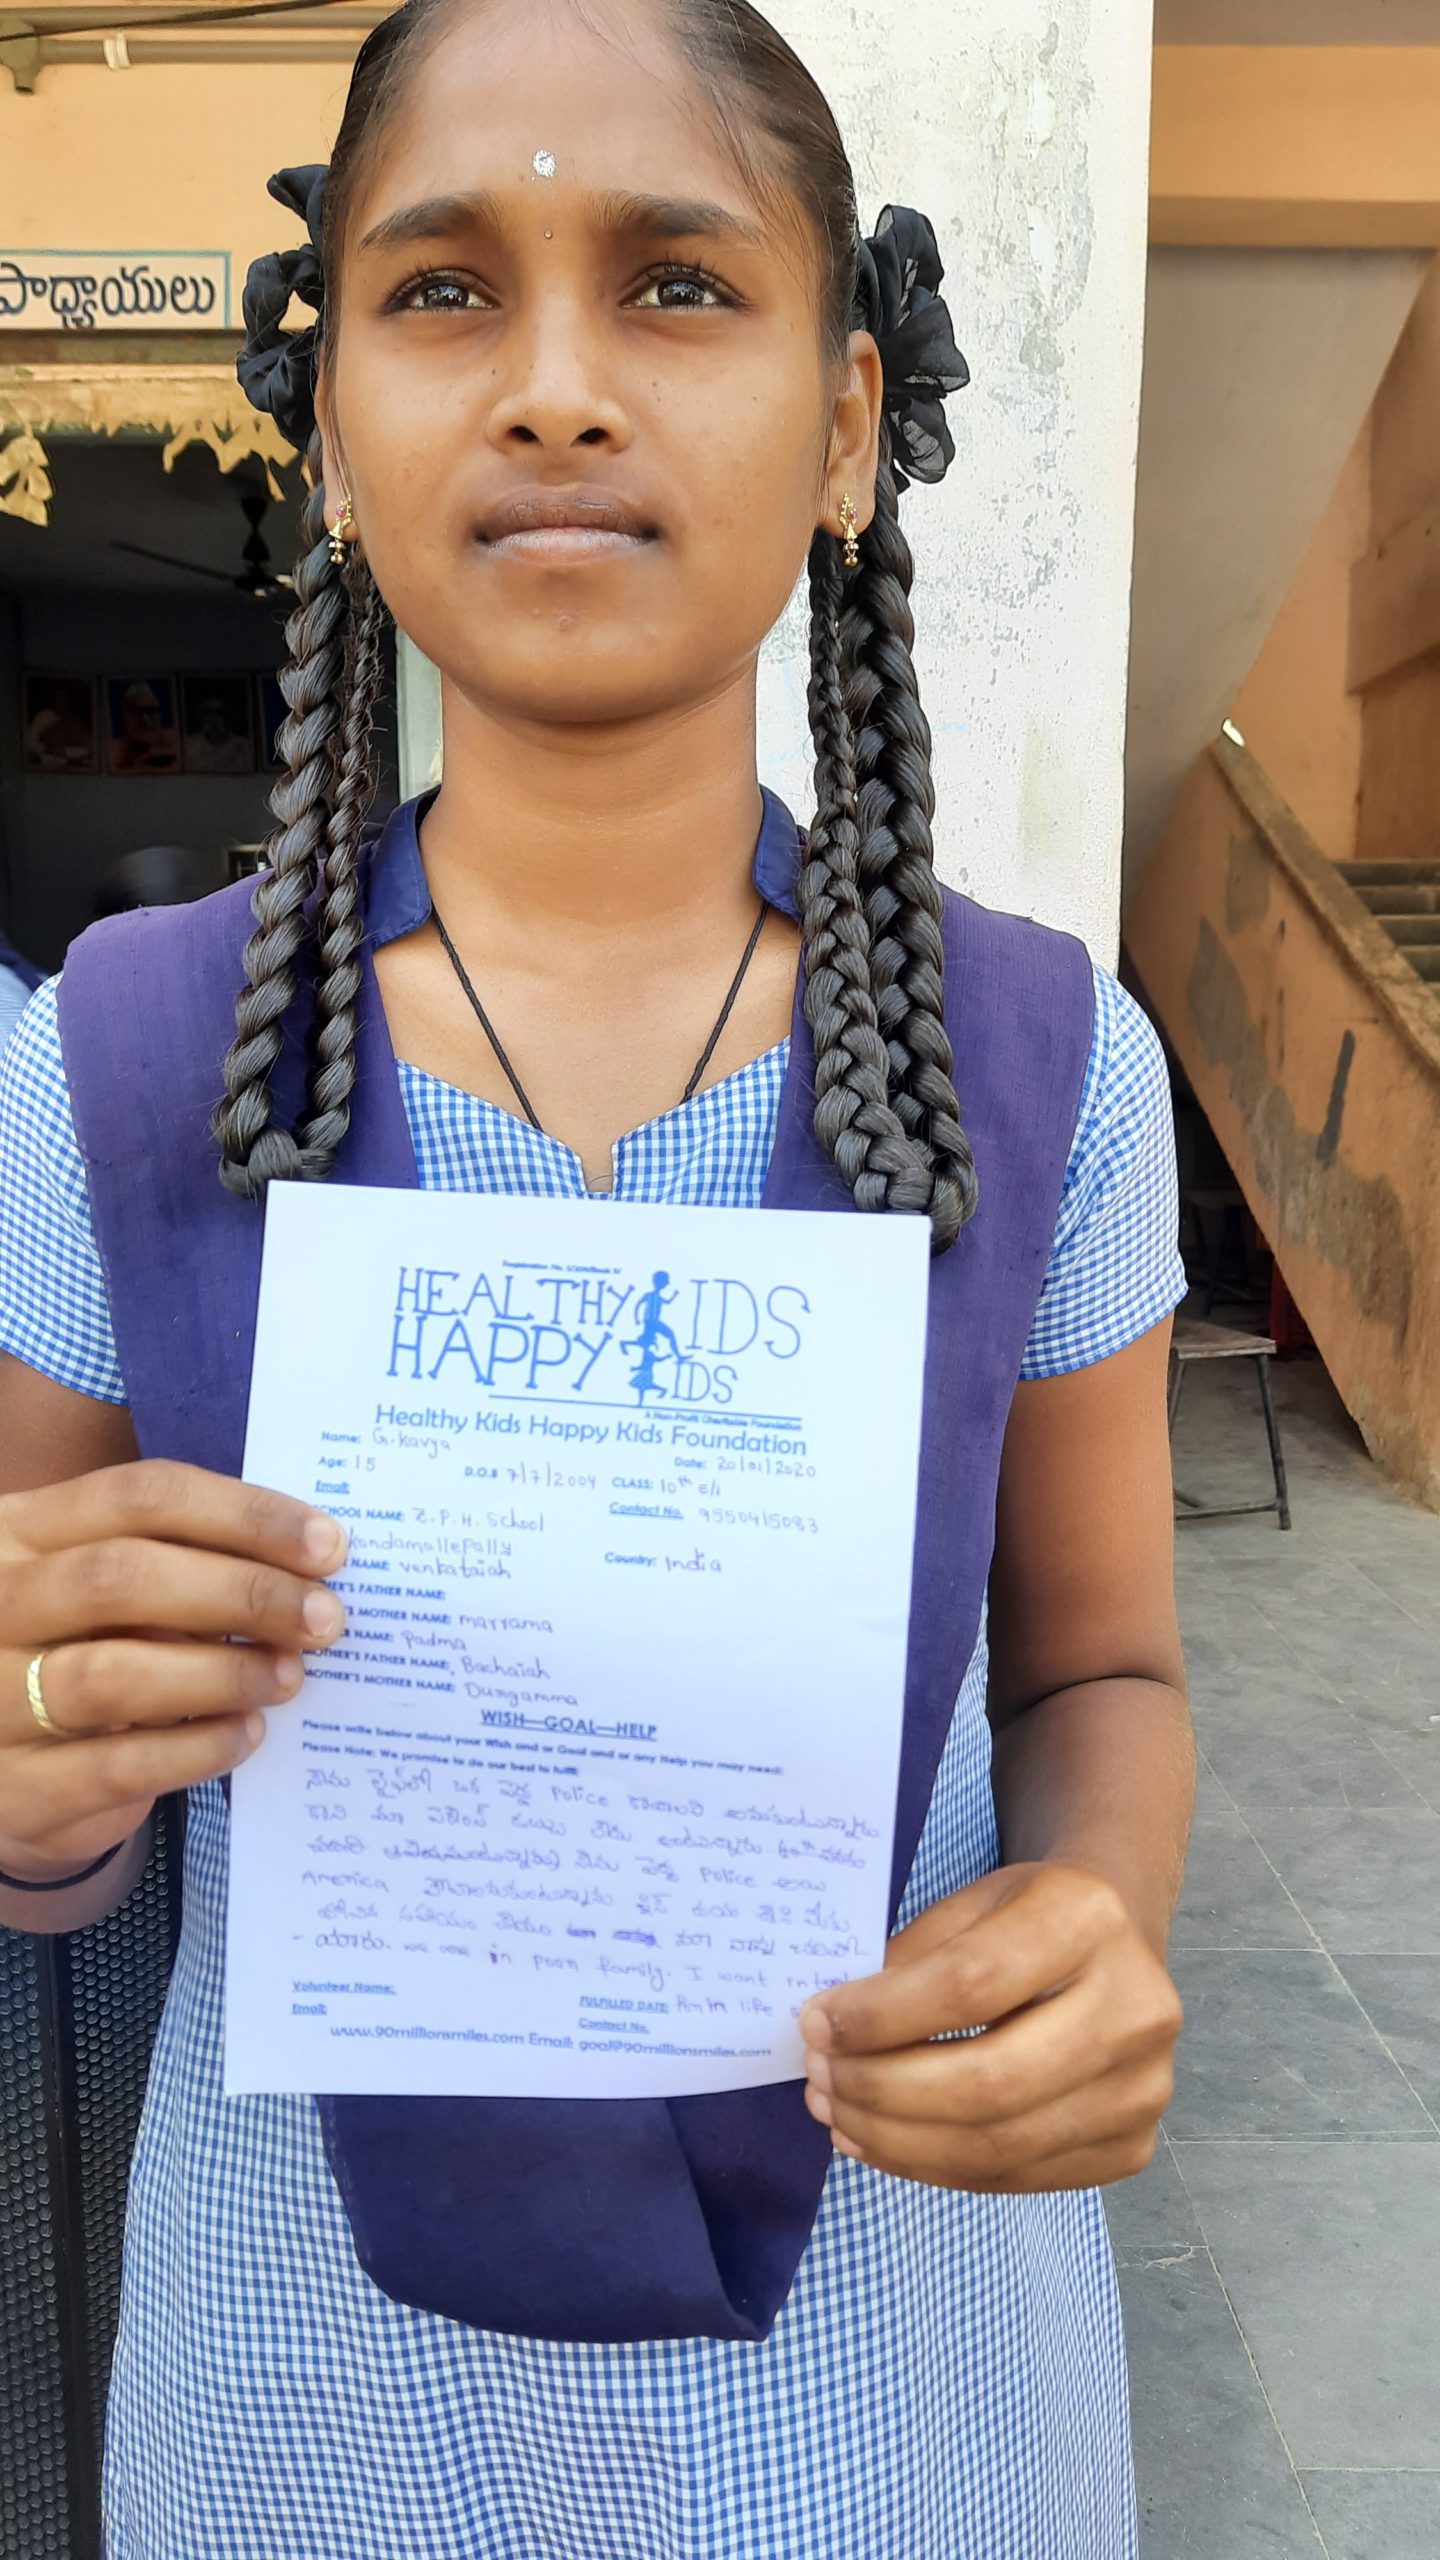 పాధ్యాయులు
HEALTHY KIDS
HAPPY KIDS
A Non-Profit Charitable Foundation
Healthy Kids Happy Kids Foundation
Name: G. Kavya
Date: 20/01/2020
Age: 15 D.O.B 7/7/2004 CLASS: 10th E/1
Email:
SCHOOL NAME: Z.P.H. School Contact No. 9550415083
kondamallepally
NAME: venkataiah Country: India
HER'S FATHER NAME:
'S MOTHER NAME: marrama
R NAME: Padma
MOTHER'S FATHER NAME: Bachaiah
MOTHER'S MOTHER NAME: Durgamma
WISH—GOAL—HELP
Please write below about your Wish and or Goal and or any Help you may need:
Please Note: We promise to do our best to fulfil
నేను లైఫ్‌లో ఒక పెద్ద Police కావాలని అనుకుంటున్నాను
కాని మా పేరెంట్స్ డబ్బు లేదు అంటున్నారు.
నేను పెద్ద Police అయి
America
సహాయం చేయం మా నాన్న
we are in poor family. I want
Volunteer Name:
FULFILLED DATE: in life
Email:
Contact No.
www.90millionsmiles.com Email: goal@90millionsmiles.com